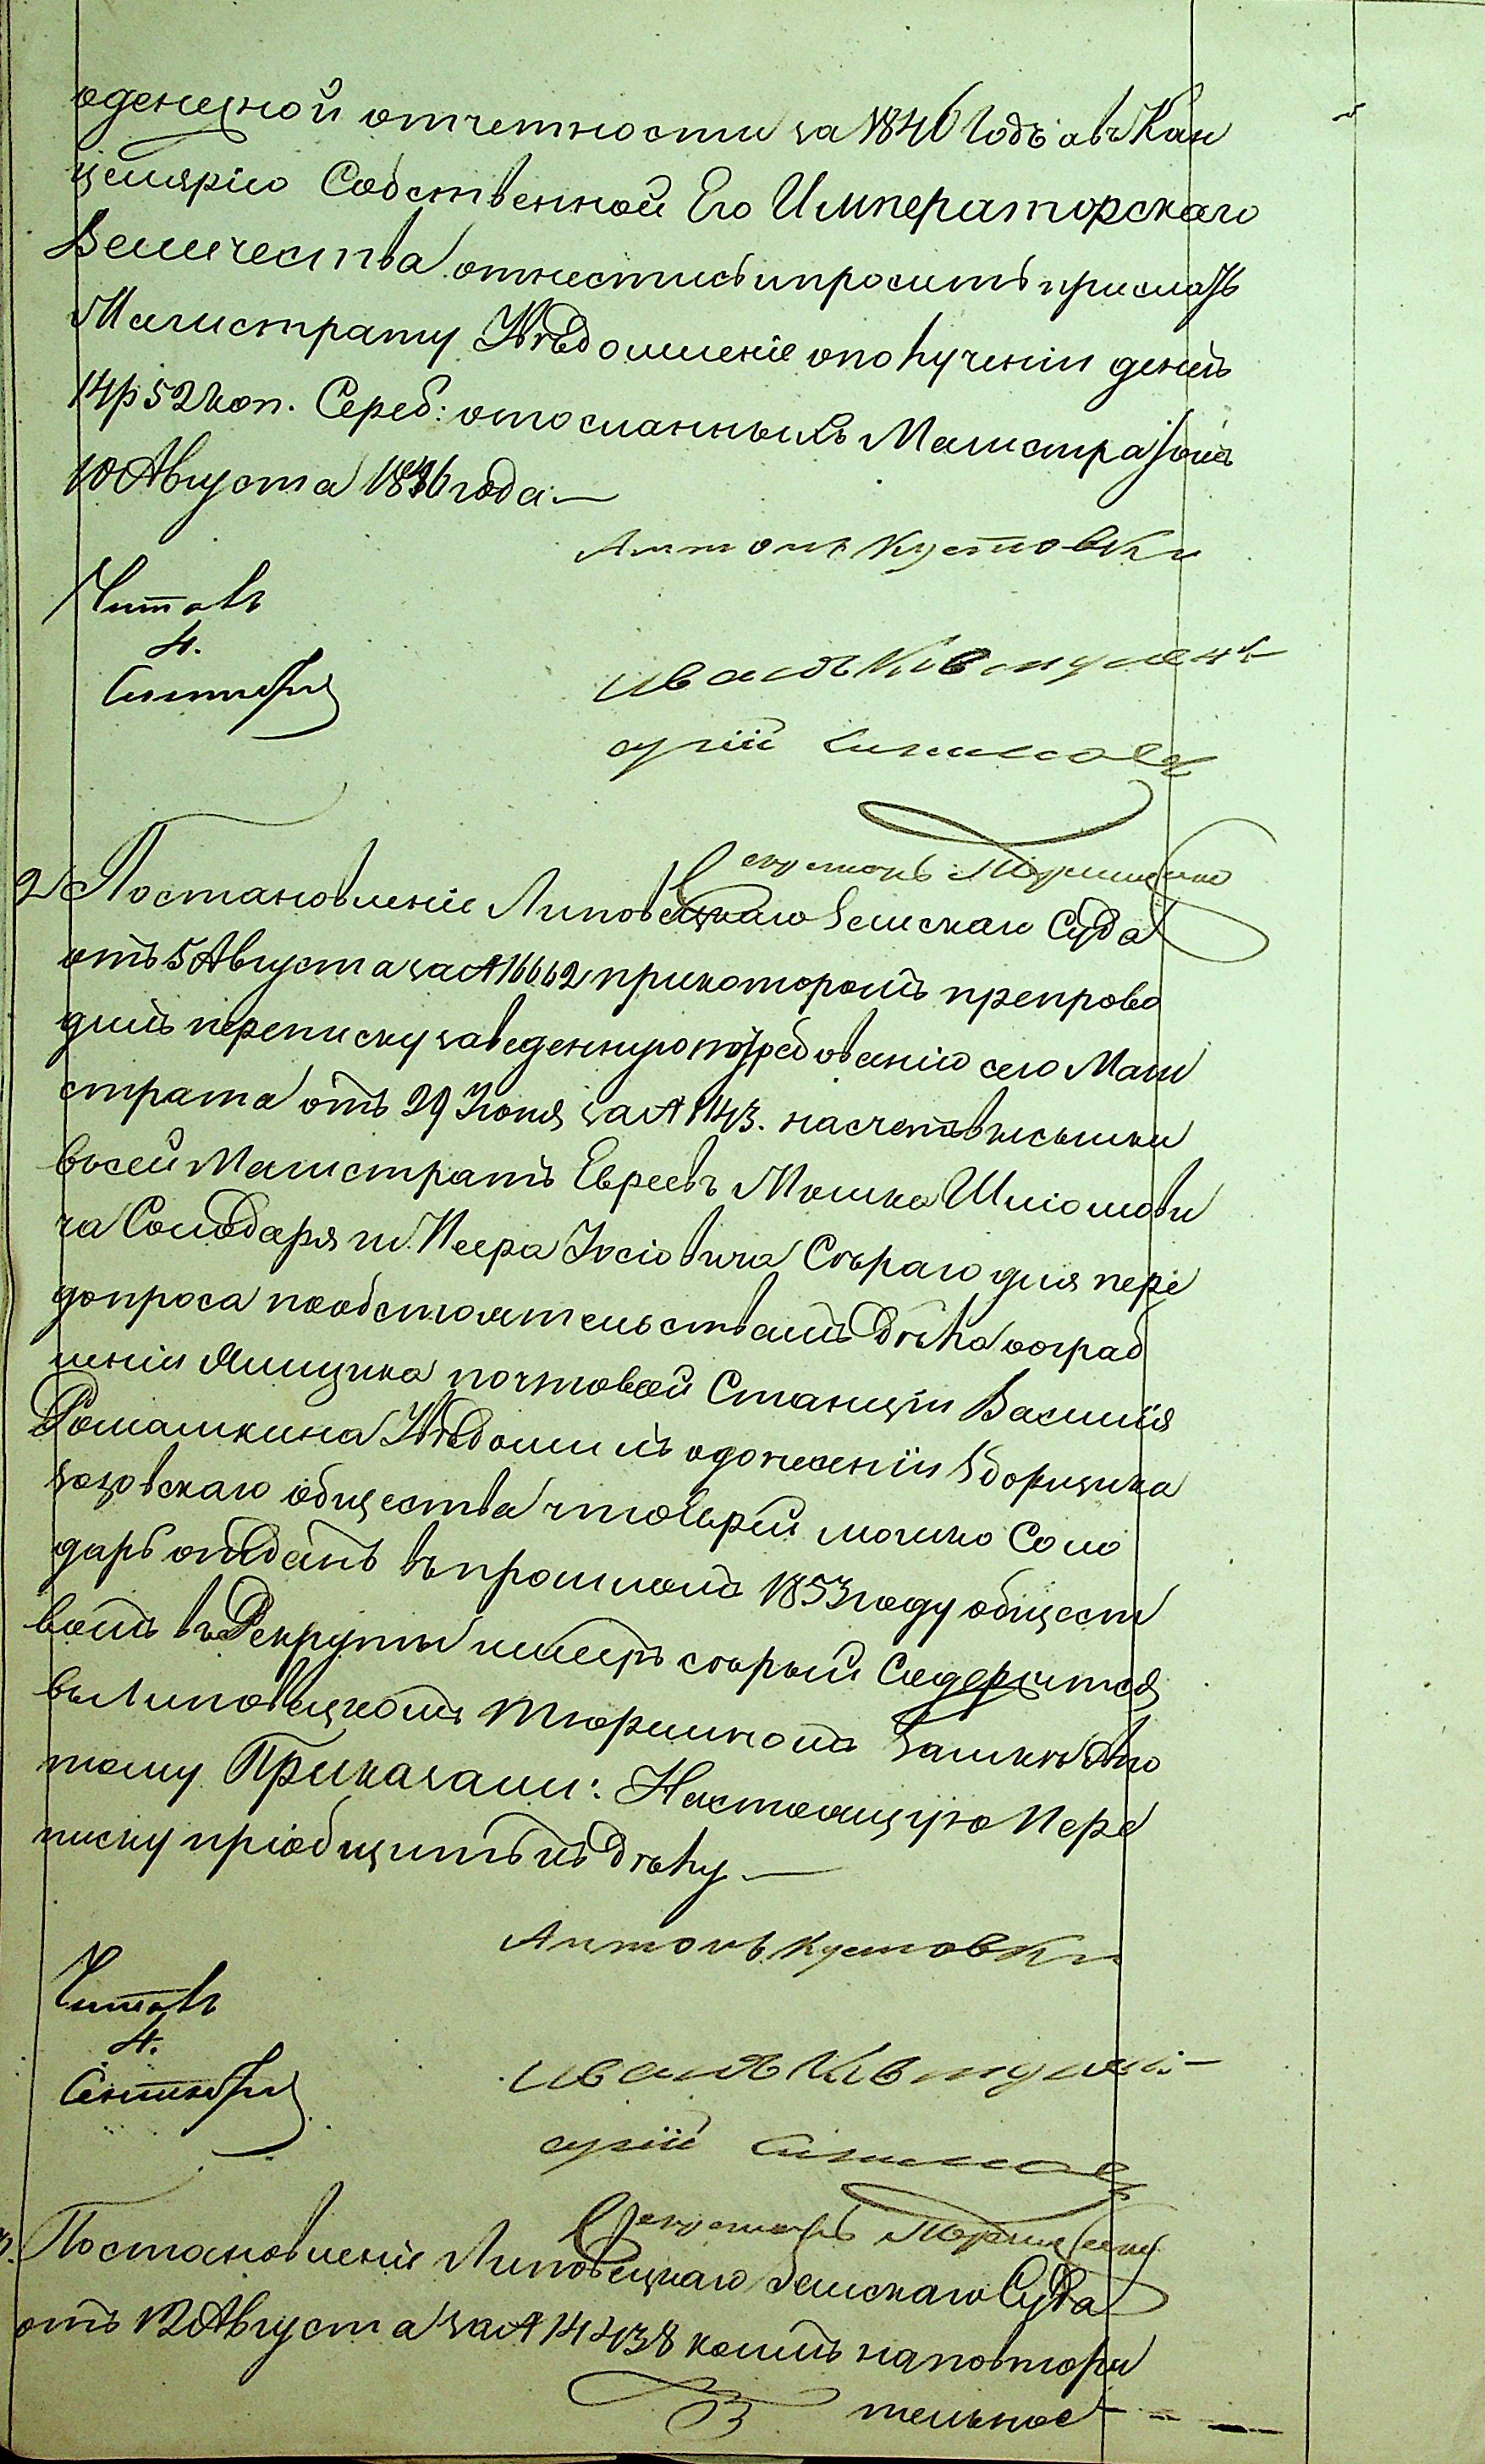 оденежной отчетности за 1846 Годъ авъ Кан
целярію Собственной Его Императорскаго
Величества отнестись ипросить прислать
Магистрату Увѣдомленіе ополученіи денегъ
14р 52 коп. Сереб: отосланныхъ Магистратомъ
10 Августа 1846 года —
Антонъ Кустовски
Читалъ
4.
Сентября
Иванъ
2 Постановленіе Липовецкаго Земскаго Суда
отъ 5 Августа за № 16662 прикоторомъ препрово
дилъ переписку заведенную потребованію сего Маги
страта отъ 29 Іюня за № 1143. насчетъ высылки
въсей Магистратъ Евреевъ Мошка Шліомови
ча Солодаря и Меера Іосіовича Сѣраго для пере
допроса пообстоятельствамъ дѣла оограб
леніи Ямщика почтовой Станціи Василія
Ромашкина Увѣдомилъ одонесеніи Зборщика
Зозовскаго общества что Еврей Мошко Соло
дарь отданъ въ прошломъ 1853 году общест
вомъ въ Рекруты и Меръ сѣрый Содержится
въ Липовецкомъ Тюремномъ Замкѣ по
тому Приказали: Настоящую Пере
писку пріобщить къ дѣлу —
Антонъ Кустовски
Читалъ
4.
Сентября
Иванъ
3. Постановленіе Липовецкаго Земскаго Суда
отъ 12 Августа за № 14438 коимъ наповтори
тельное